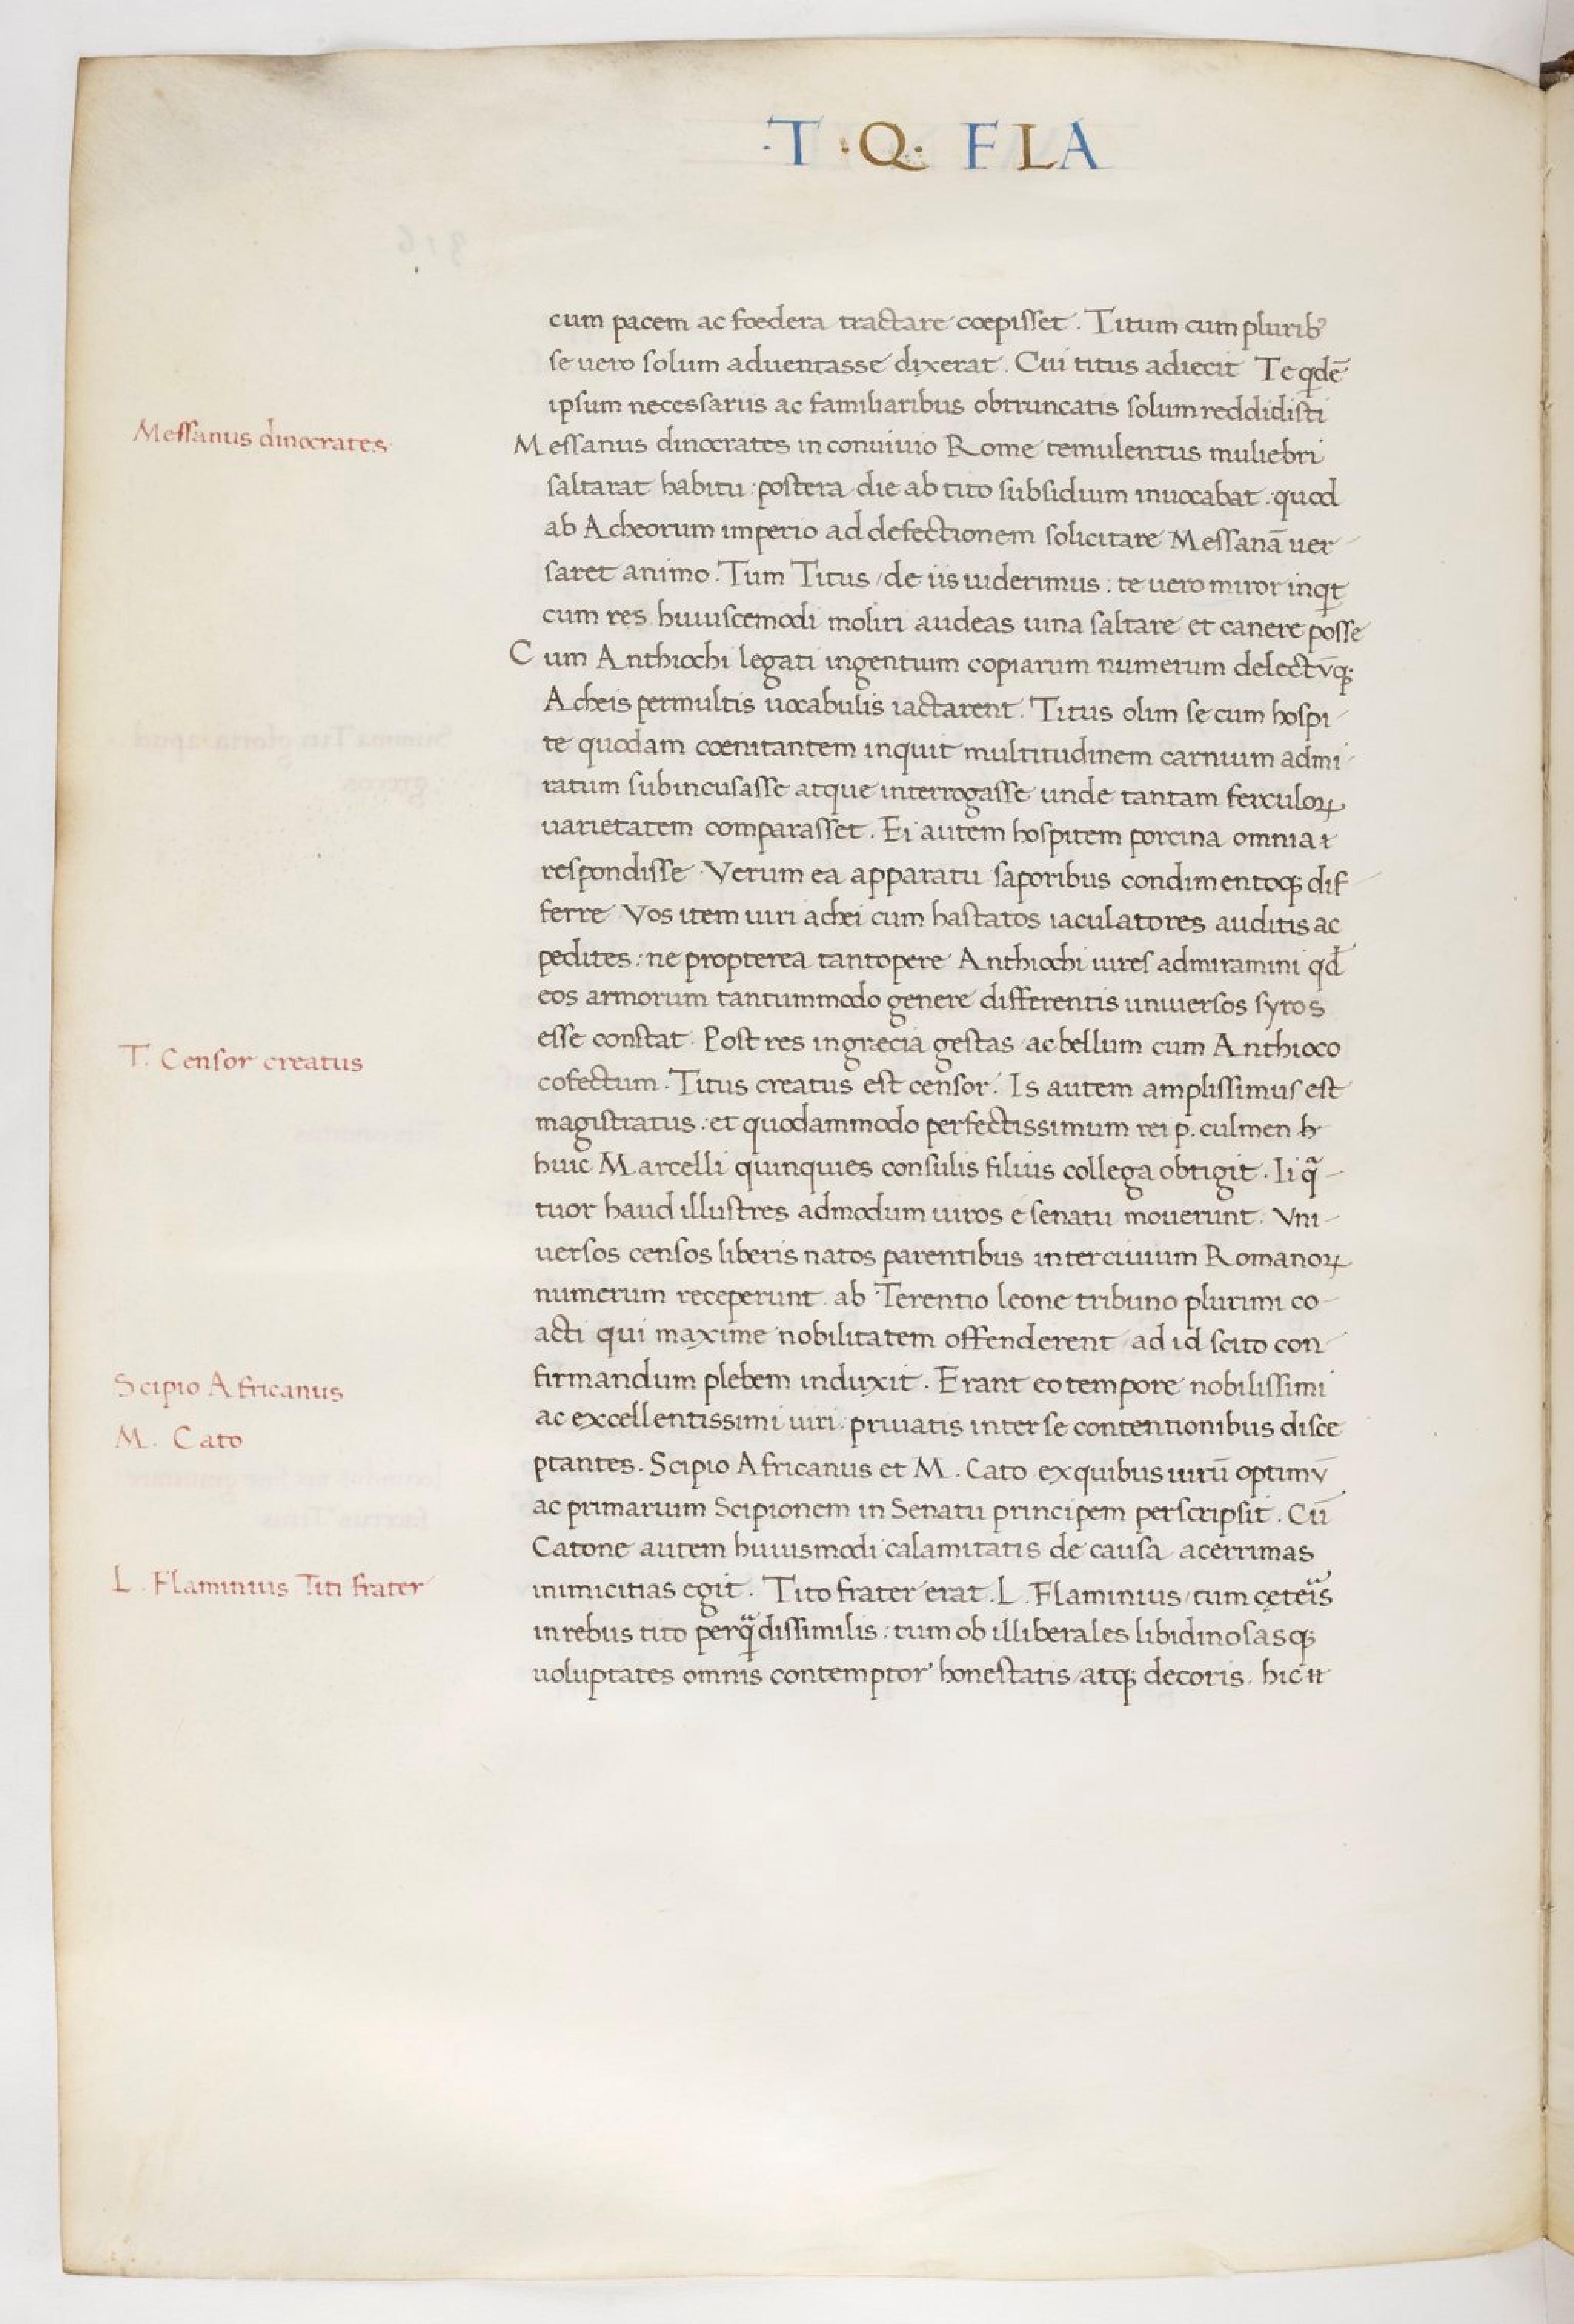 ·T·Q· FLA
cum pacem ac foedera tractare coepisset. Titum cum plurib⁹
se uero solum aduentasse dixerat. Cui titus adiecit Te qdē
ipsum necessariis ac familiaribus obtruncatis solum reddidisti
Messanus dinocrates
Messanus dinocrates in conuiuio Rome temulentus muliebri
saltarat habitu: postera die ab tito subsidium inuocabat. quod
ab Acheorum imperio ad defectionem solicitare Messanā uer
saret animo. Tum Titus / de iis uiderimus: te uero miror inqt
cum res huiuscemodi moliri audeas uina saltare et canere posse
Cum Anthiochi legati ingentium copiarum numerum delectv̄q;
Acheis permultis uocabulis iactarent. Titus olim se cum hospi
te quodam coenitantem inquit multitudinem carnium admi
ratum subincusasse atque interrogasse unde tantam ferculoꝝ
uarietatem comparasset. Ei autem hospitem porcina omnia
respondisse. Verum ea apparatu saporibus condimentoq; dif
ferre Vos item uiri achei cum hastatos iaculatores auditis ac
pedites: ne propterea tantopere Anthiochi uires admiramini qd̄
eos armorum tantummodo genere differentis uniuersos syros
esse constat. Post res in grecia gestas ac bellum cum Anthioco
T. Censor creatus
cofectum. Titus creatus est censor. Is autem amplissimus est
magistratus: et quodammodo perfectissimum rei p. culmen h·
huic Marcelli quinquies consulis filius collega obtigit. Ii qᵃ
tuor haud illustres admodum uiros e senatu mouerunt. Vni
uersos censos liberis natos parentibus inter ciuium Romanoꝝ
numerum receperunt. ab Terentio leone tribuno plurimi co
acti qui maxime nobilitatem offenderent / ad id scito con
firmandum plebem induxit. Erant eo tempore nobilissimi
Scipio Africanus
ac excellentissimi uiri. priuatis inter se contentionibus disce
M. Cato
ptantes. Scipio Africanus et M. Cato ex quibus uirū optimv̄
ac primarium Scipionem in Senatu principem perscripsit. Cū
Catone autem huiusmodi calamitatis de causa acerrimas
L. Flaminius Titi frater
inimicitias egit. Tito frater erat. L. Flaminius / tum cęteis
in rebus tito perqᵃ dissimilis: tum ob illiberales libidinosasq;
uoluptates omnis contemptor honestatis / atq; decoris. hic